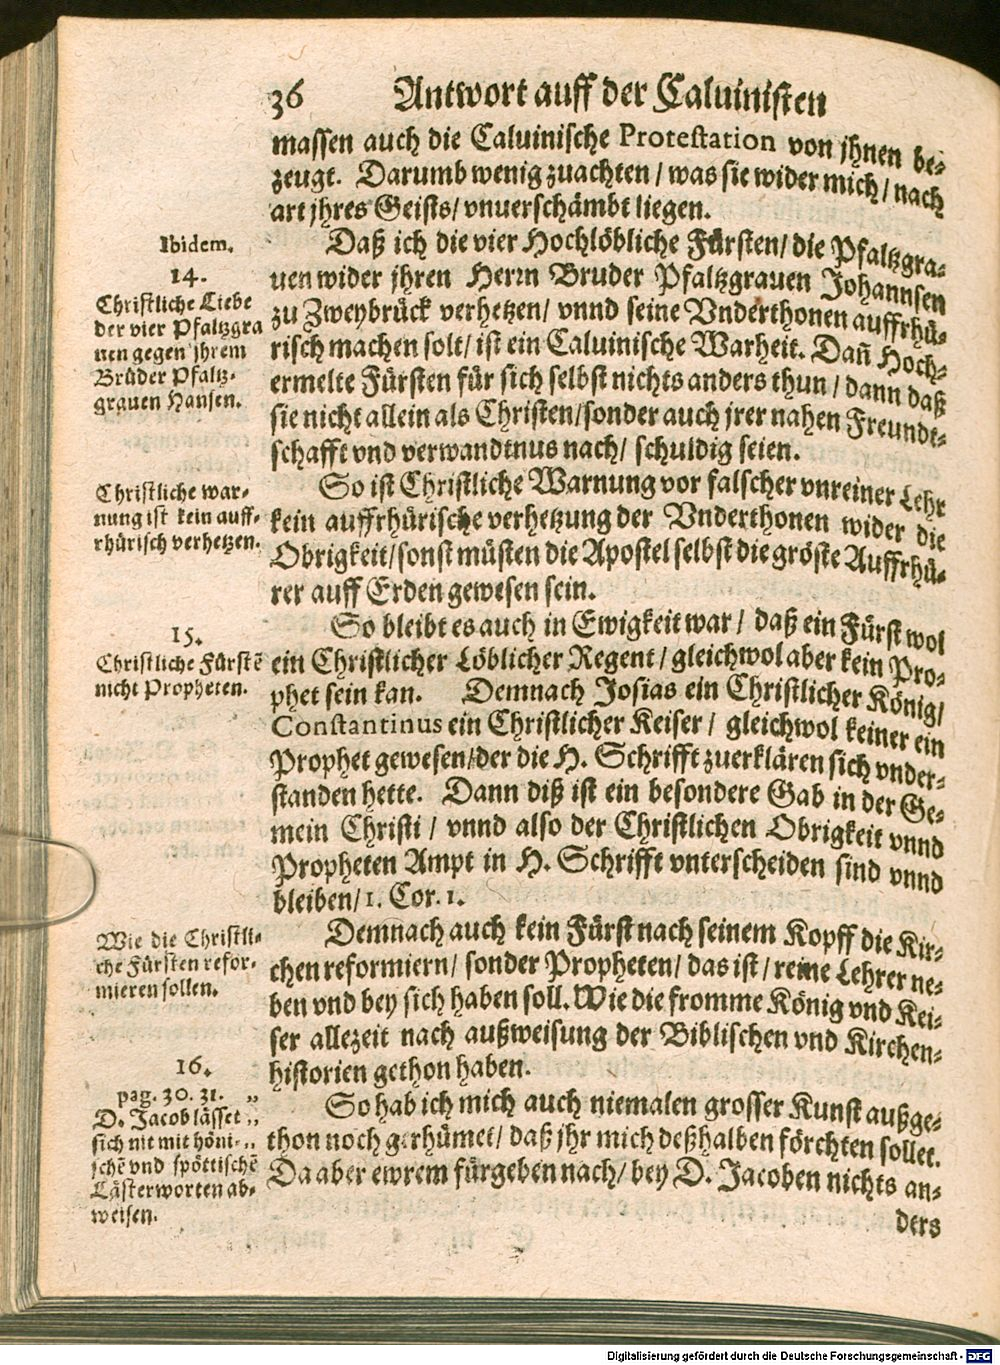 36 Antwort auff der Caluinisten
massen auch die Caluinische Protestation von jhnen be-
zeugt. Darumb wenig zuachten / was sie wider mich / nach
art jhres Geists / vnuerschämbt liegen.
Ibidem.
14.
Christliche Liebe
der vier Pfaltzgra
uen gegen jhrem
Brüder Pfaltz-
grauen Hansen.
Daß ich die vier Hochlöbliche Fürsten / die Pfaltzgra-
uen wider jhren Herrn Bruder Pfaltzgrauen Johannsen
zu Zweybrück verhetzen / vnnd seine Vnderthonen auffrhü-
risch machen solt / ist ein Caluinische Warheit. Dañ Hoch-
ermelte Fürsten für sich selbst nichts anders thun / dann daß
sie nicht allein als Christen / sonder auch jrer nahen Freundt-
schafft vnd verwandtnus nach / schuldig seien.
Christliche war-
nung ist kein auff-
rhürisch verhetzen.
So ist Christliche Warnung vor falscher vnreiner Lehr
kein auffrhürische verhetzung der Vnderthonen wider die
Obrigkeit / sonst müsten die Apostel selbst die gröste Auffrhü-
rer auff Erden gewesen sein.
15.
Christliche Fürstẽ
nicht Propheten.
So bleibt es auch in Ewigkeit war / daß ein Fürst wol
ein Christlicher Löblicher Regent / gleichwol aber kein Pro-
phet sein kan. Demnach Josias ein Christlicher König /
Constantinus ein Christlicher Keiser / gleichwol keiner ein
Prophet gewesen / der die H. Schrifft zuerklären sich vnder-
standen hette. Dann diß ist ein besondere Gab in der Ge-
mein Christi / vnnd also der Christlichen Obrigkeit vnnd
Propheten Ampt in H. Schrifft vnterscheiden sind vnnd
bleiben / 1. Cor. 1.
Wie die Christli-
che Fürsten refor-
mieren sollen.
Demnach auch kein Fürst nach seinem Kopff die Kir-
chen reformiern / sonder Propheten / das ist / reine Lehrer ne-
ben vnd bey sich haben soll. Wie die fromme König vnd Kei-
ser allezeit nach außweisung der Biblischen vnd Kirchen-
historien gethon haben.
16.
pag. 30. 31. „
D. Jacob lässet „
sich nit mit höni- „
schẽ vnd spöttischẽ
Lästerworten ab-
weisen.
So hab ich mich auch niemalen grosser Kunst außge-
thon noch gerhümet / daß jhr mich deßhalben förchten sollet.
Da aber ewrem fürgeben nach / bey D. Jacoben nichts an-
ders
Digitalisierung gefördert durch die Deutsche Forschungsgemeinschaft - DFG